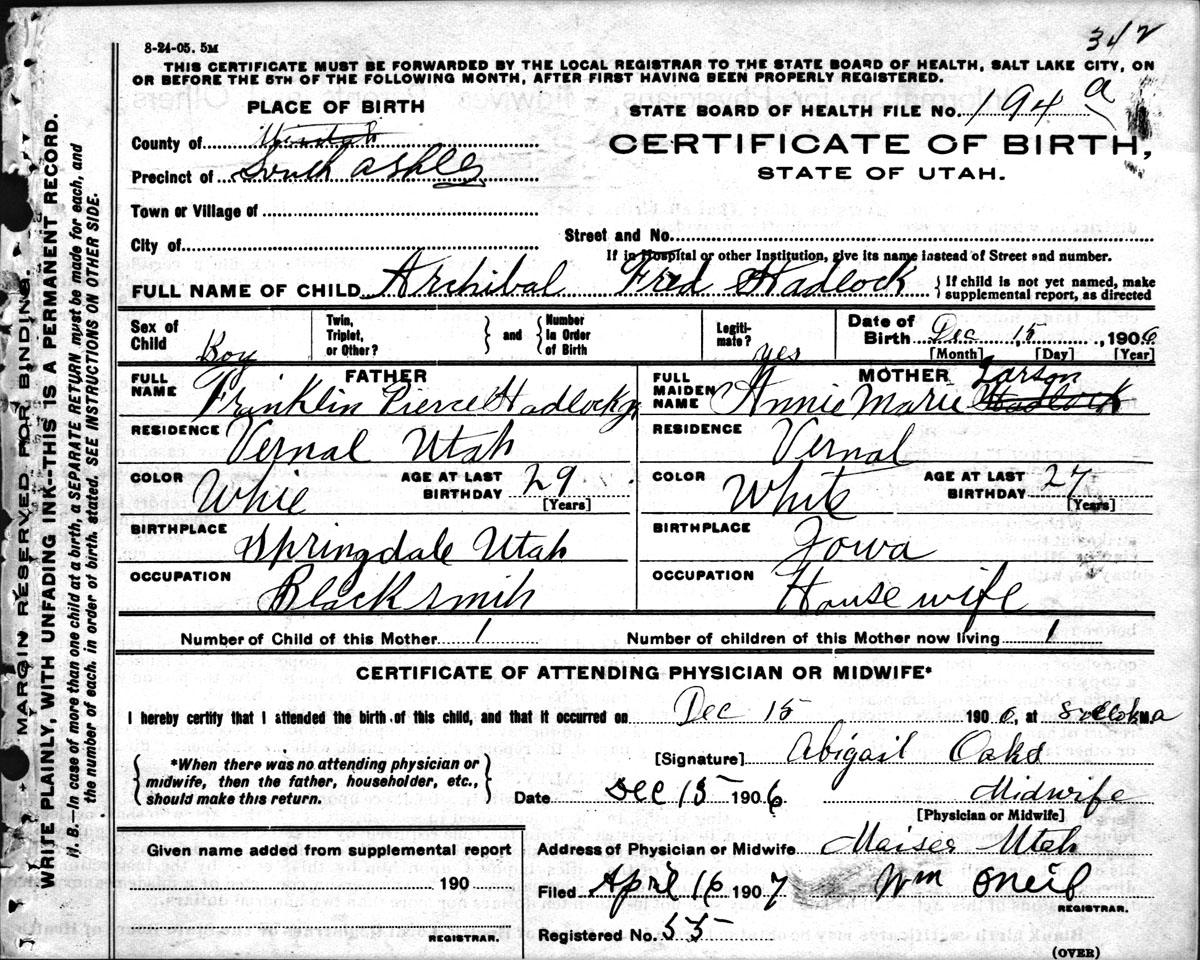 342
8-24-05. 5M
THIS CERTIFICATE MUST BE FORWARDED BY THE LOCAL REGISTRAR TO THE STATE BOARD OF HEALTH, SALT LAKE CITY, ON
OR BEFORE THE 5TH OF THE FOLLOWING MONTH, AFTER FIRST HAVING BEEN PROPERLY REGISTERED.
PLACE OF BIRTH
STATE BOARD OF HEALTH FILE No. 194 a
County of Uintah
CERTIFICATE OF BIRTH,
Precinct of South Ashley
STATE OF UTAH.
Town or Village of
City of
Street and No.
If in Hospital or other Institution, give its name instead of Street and number.
FULL NAME OF CHILD Archibal Fred Hadlock { If child is not yet named, make
supplemental report, as directed
Sex of Child Boy Twin, Triplet, or Other? } and { Number in Order of Birth Legiti- mate? yes Date of Birth Dec 15, 1906
[Month] [Day] [Year]
FATHER MOTHER
FULL NAME Franklin Pierce Hadlock Jr FULL MAIDEN NAME Annie Marie Larson Hadlock
RESIDENCE Vernal Utah RESIDENCE Vernal
COLOR Whie AGE AT LAST BIRTHDAY 29 [Years] COLOR White AGE AT LAST BIRTHDAY 27 [Years]
BIRTHPLACE Springdale Utah BIRTHPLACE Iowa
OCCUPATION Blacksmih OCCUPATION Housewife
Number of Child of this Mother 1 Number of children of this Mother now living 1
CERTIFICATE OF ATTENDING PHYSICIAN OR MIDWIFE*
I hereby certify that I attended the birth of this child, and that it occurred on Dec 15 1906, at M.
[Signature] Abigail Oaks
{ *When there was no attending physician or
midwife, then the father, householder, etc.,
should make this return. }
Date Dec 15 1906 Midwife
[Physician or Midwife]
Given name added from supplemental report
Address of Physician or Midwife Maiser Utah
190
Filed April 16 1907 Wm Oneil
REGISTRAR.
REGISTRAR.
Registered No. 55
(OVER)
MARGIN RESERVED FOR BINDING.
WRITE PLAINLY, WITH UNFADING INK--THIS IS A PERMANENT RECORD.
N. B.—In case of more than one child at a birth, a SEPARATE RETURN must be made for each, and
the number of each, in order of birth, stated. SEE INSTRUCTIONS ON OTHER SIDE.